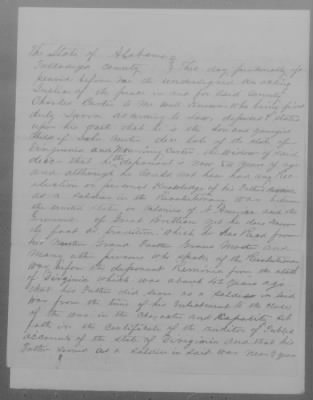 The State of Alabama
Talladega County } This day personally ap
peared before me the undersigned an acting
Justice of the peace in and for said County
Charles Carter to me well known who being first
duly sworn according to law, deposes & states
upon his oath that he is the son and youngest
child of John Carter dec late of the State of
Virginia and Carter the widow of said
dec that he the deponent is now 54 years of age
and although he could not have had any rec
ollection or personal knowledge of his Father
as a soldier in the Revolutionary War between
the United States or Colonies of America and the
Government of Great Brittian yet he does know
the fact by tradition which he has had from
his Mother Grand Father Grand Mother and
Many other persons who spoke of the Revolutionary
War before this deponent Removed from the State
of Virginia which was about 42 years ago
that his Father did serve as a soldier in said
war from the time of his Enlistment to the close
of the war in the character and Capacity set
forth in the certificate of the auditor of Public
accounts of the state of Virginia and that his
Father served as a soldier in said war near 3 years